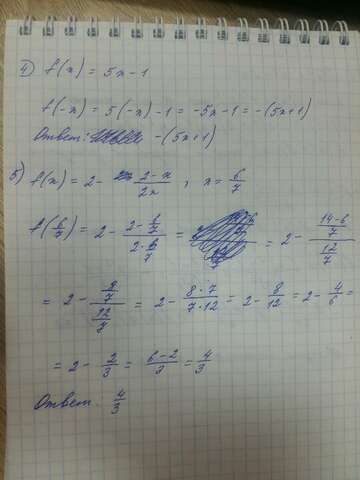 4) f(x) = 5x - 1
f(-x) = 5(-x) - 1 = -5x - 1 = -(5x+1)
Ответ: -(5x+1)
5) f(x) = 2 - \frac{2-x}{2x} ; x = \frac{6}{7}
f(\frac{6}{7}) = 2 - \frac{2-\frac{6}{7}}{2·\frac{6}{7}} = = 2 - \frac{\frac{14-6}{7}}{\frac{12}{7}}
= 2 - \frac{\frac{8}{7}}{\frac{12}{7}} = 2 - \frac{8·7}{7·12} = 2 - \frac{8}{12} = 2 - \frac{4}{6} =
= 2 - \frac{2}{3} = \frac{6-2}{3} = \frac{4}{3}
Ответ: \frac{4}{3}